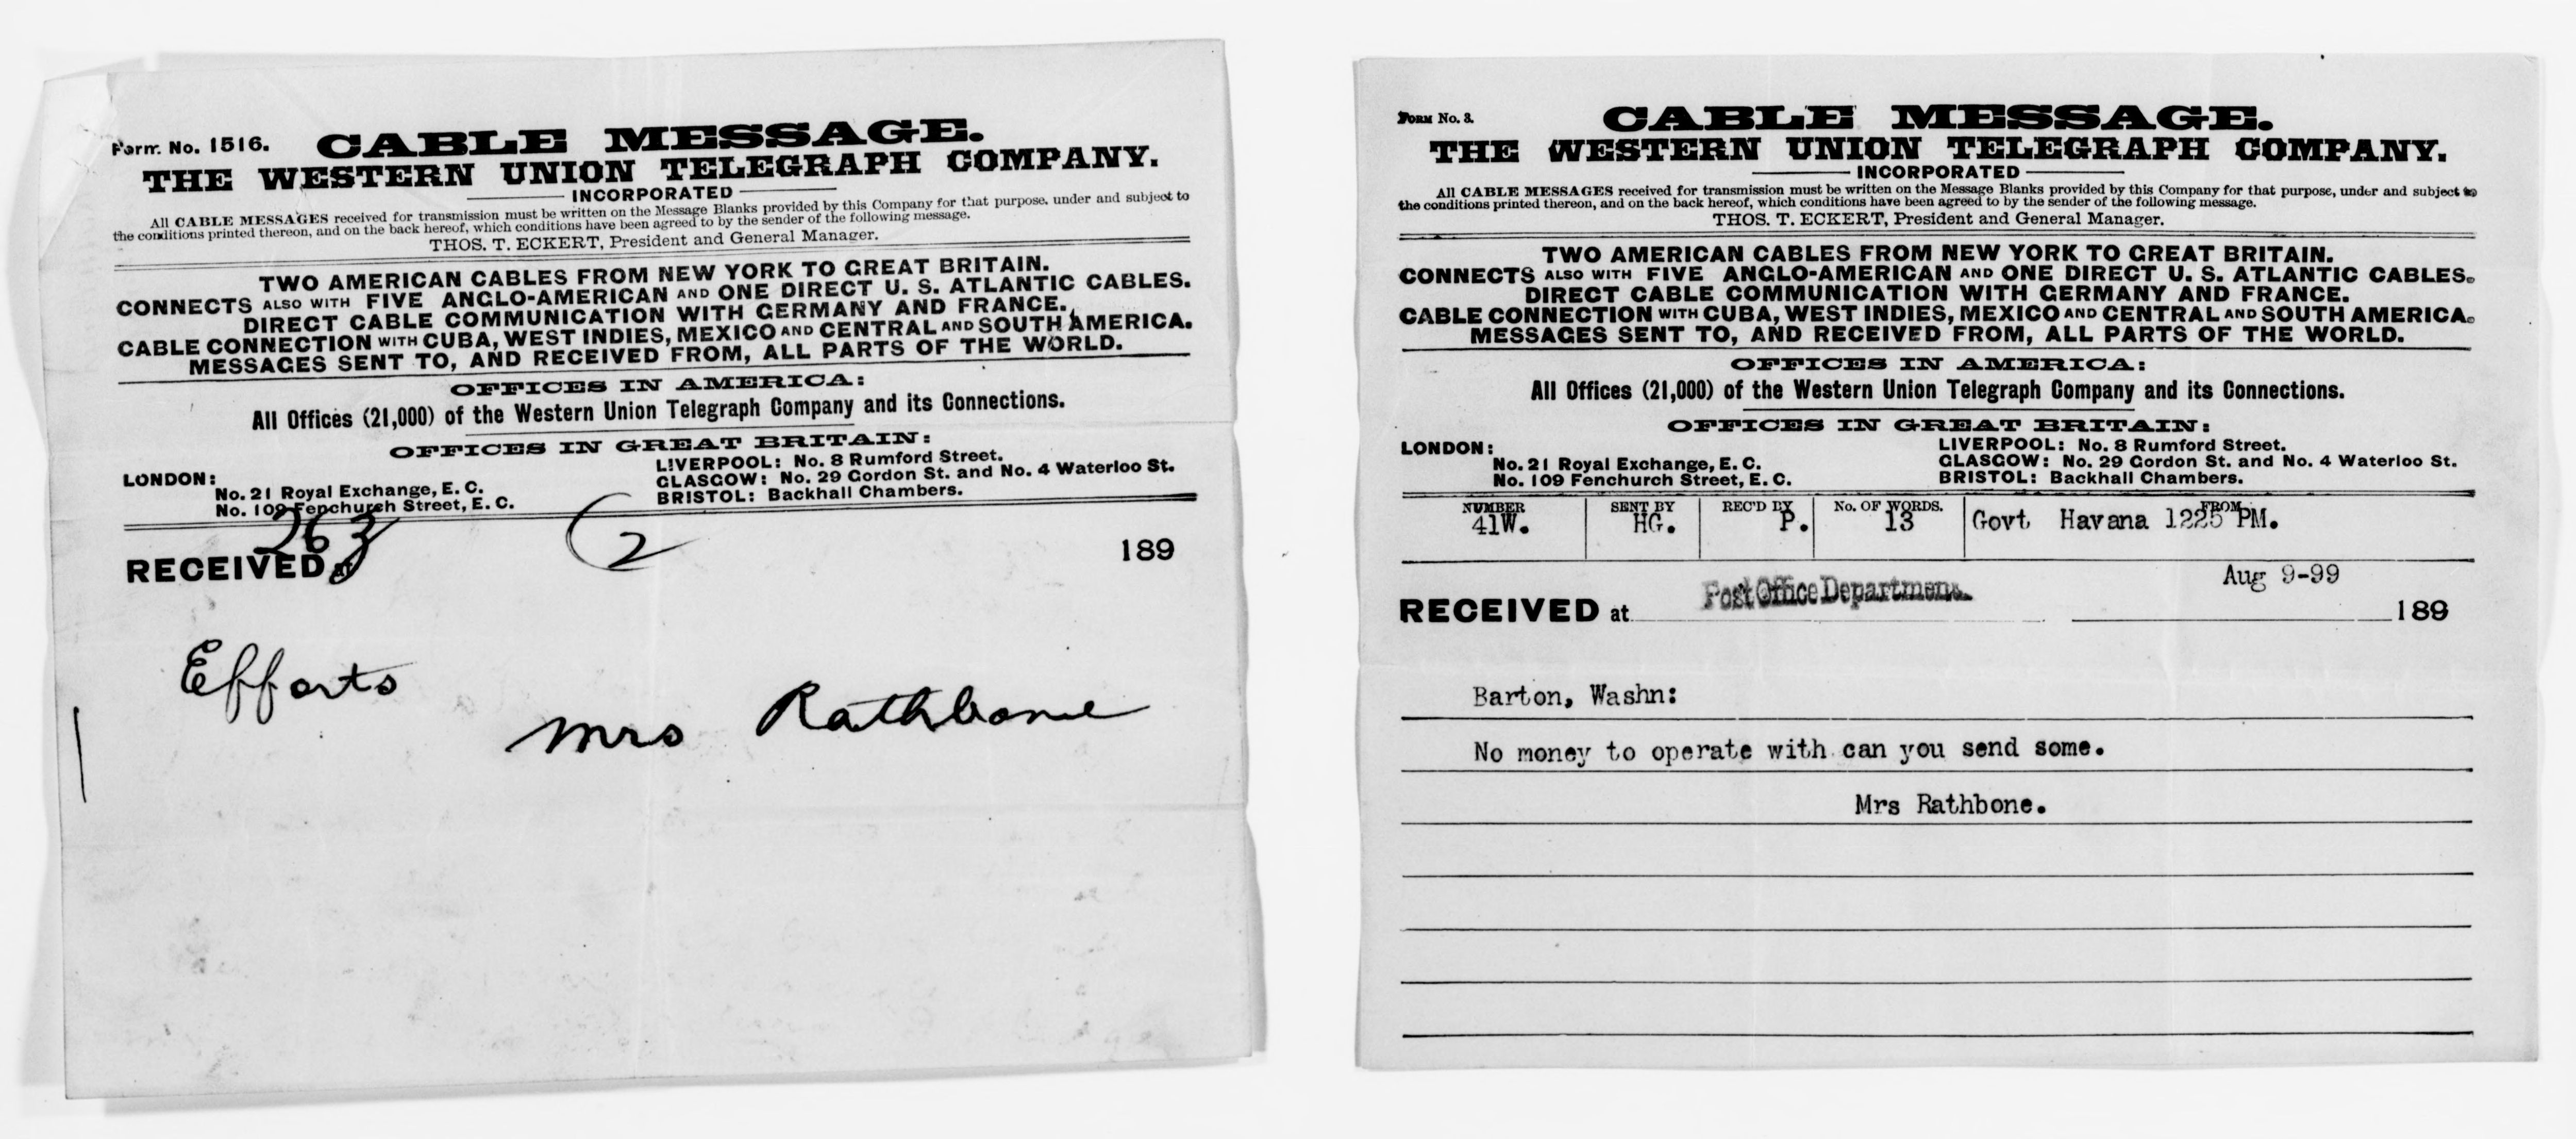 Form No. 1516.
CABLE MESSAGE.
THE WESTERN UNION TELEGRAPH COMPANY.
INCORPORATED
All CABLE MESSAGES received for transmission must be written on the Message Blanks provided by this Company for that purpose, under and subject to
the conditions printed thereon, and on the back hereof, which conditions have been agreed to by the sender of the following message.
THOS. T. ECKERT, President and General Manager.
TWO AMERICAN CABLES FROM NEW YORK TO GREAT BRITAIN.
CONNECTS ALSO WITH FIVE ANGLO-AMERICAN AND ONE DIRECT U. S. ATLANTIC CABLES.
DIRECT CABLE COMMUNICATION WITH GERMANY AND FRANCE.
CABLE CONNECTION WITH CUBA, WEST INDIES, MEXICO AND CENTRAL AND SOUTH AMERICA.
MESSAGES SENT TO, AND RECEIVED FROM, ALL PARTS OF THE WORLD.
OFFICES IN AMERICA:
All Offices (21,000) of the Western Union Telegraph Company and its Connections.
OFFICES IN GREAT BRITAIN:
LONDON:
No. 21 Royal Exchange, E. C.
No. 109 Fenchurch Street, E. C.
LIVERPOOL: No. 8 Rumford Street.
GLASGOW: No. 29 Gordon St. and No. 4 Waterloo St.
BRISTOL: Backhall Chambers.
26 3 (2
RECEIVED at 189
Efforts
Mrs Rathbone
Form No. 3.
CABLE MESSAGE.
THE WESTERN UNION TELEGRAPH COMPANY.
INCORPORATED
All CABLE MESSAGES received for transmission must be written on the Message Blanks provided by this Company for that purpose, under and subject to
the conditions printed thereon, and on the back hereof, which conditions have been agreed to by the sender of the following message.
THOS. T. ECKERT, President and General Manager.
TWO AMERICAN CABLES FROM NEW YORK TO GREAT BRITAIN.
CONNECTS ALSO WITH FIVE ANGLO-AMERICAN AND ONE DIRECT U. S. ATLANTIC CABLES.
DIRECT CABLE COMMUNICATION WITH GERMANY AND FRANCE.
CABLE CONNECTION WITH CUBA, WEST INDIES, MEXICO AND CENTRAL AND SOUTH AMERICA.
MESSAGES SENT TO, AND RECEIVED FROM, ALL PARTS OF THE WORLD.
OFFICES IN AMERICA:
All Offices (21,000) of the Western Union Telegraph Company and its Connections.
OFFICES IN GREAT BRITAIN:
LONDON:
No. 21 Royal Exchange, E. C.
No. 109 Fenchurch Street, E. C.
LIVERPOOL: No. 8 Rumford Street.
GLASGOW: No. 29 Gordon St. and No. 4 Waterloo St.
BRISTOL: Backhall Chambers.
NUMBER SENT BY REC'D BY No. OF WORDS. FROM
41W. HG. P. 13 Govt Havana 1225 PM.
Aug 9-99
RECEIVED at Post Office Department. 189
Barton, Washn:
No money to operate with can you send some.
Mrs Rathbone.